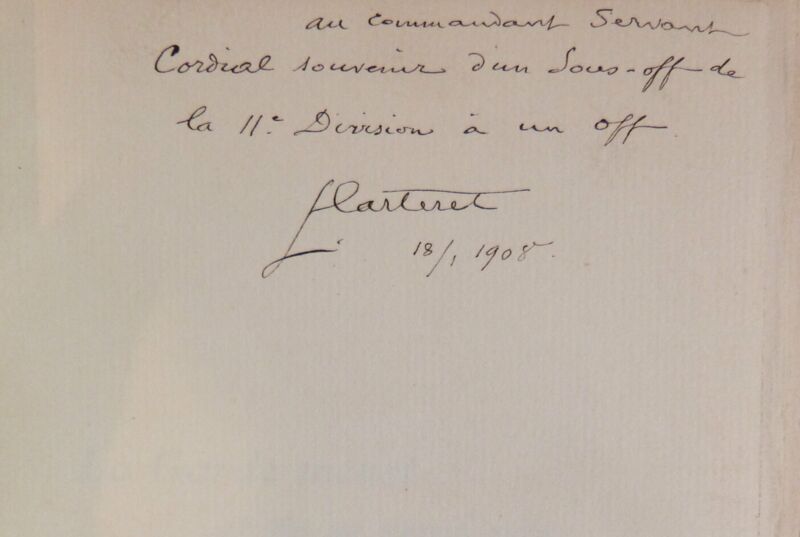 au commandant Servant
Cordial souvenir d'un Sous-off de
la 11e. Division à un off.
LCarteret
18/1 1908.